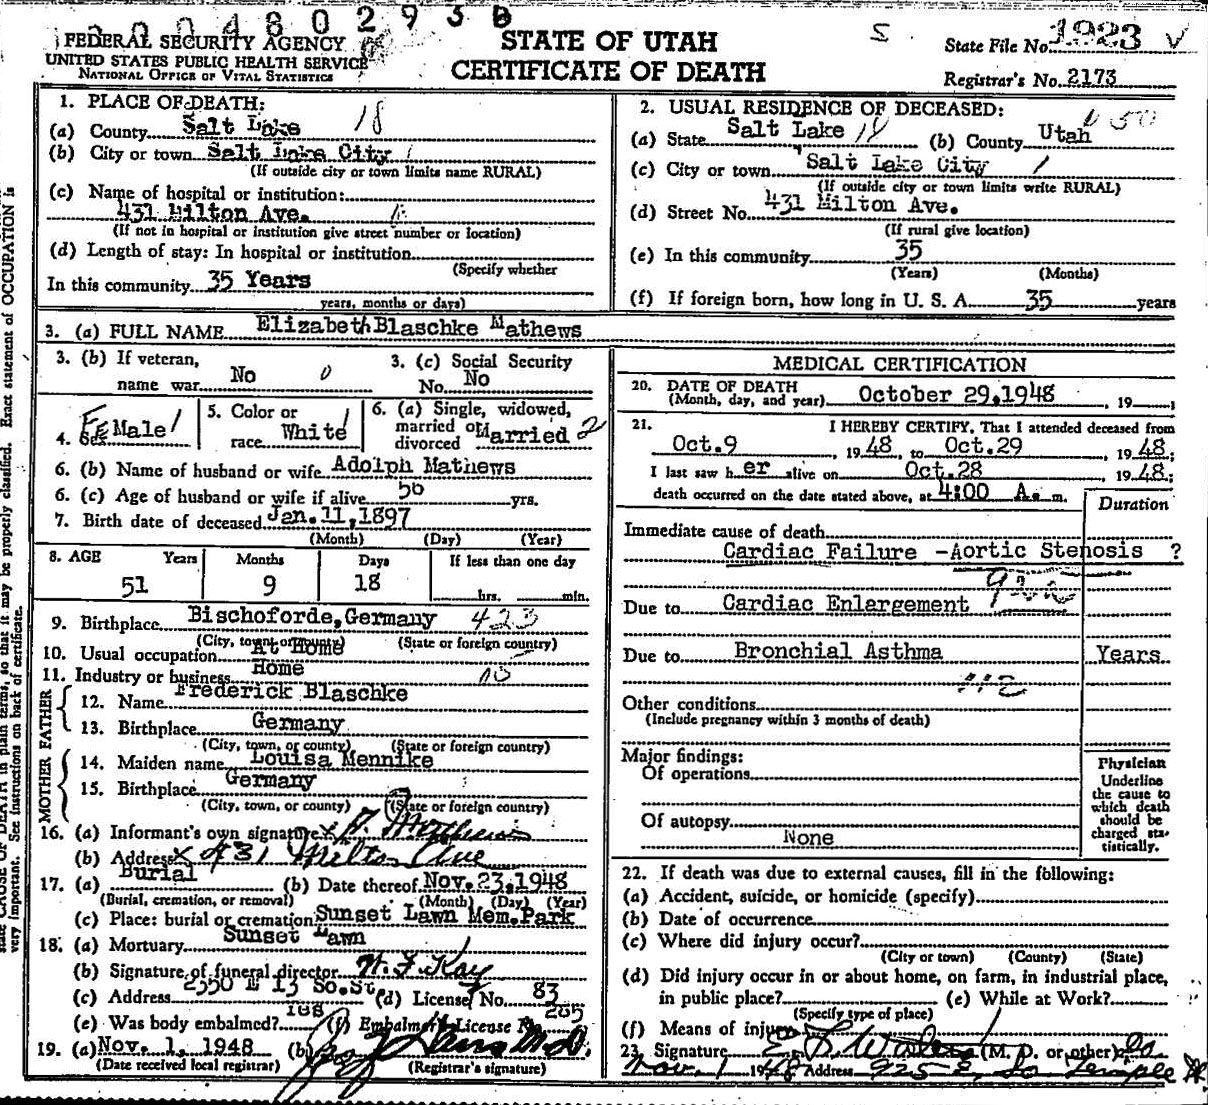 20048029 3 B
FEDERAL SECURITY AGENCY
UNITED STATES PUBLIC HEALTH SERVICE
NATIONAL OFFICE OF VITAL STATISTICS
STATE OF UTAH
CERTIFICATE OF DEATH
State File No. 1923
Registrar's No. 2173
1. PLACE OF DEATH:
(a) County Salt Lake 18
(b) City or town Salt Lake City
(If outside city or town limits name RURAL)
(c) Name of hospital or institution:
431 Milton Ave.
(If not in hospital or institution give street number or location)
(d) Length of stay: In hospital or institution
(Specify whether
In this community 35 Years
years, months or days)
2. USUAL RESIDENCE OF DECEASED:
(a) State Salt Lake 18 (b) County Utah
(c) City or town Salt Lake City 1
(If outside city or town limits write RURAL)
(d) Street No. 431 Milton Ave.
(If rural give location)
(e) In this community 35
(Years) (Months)
(f) If foreign born, how long in U. S. A. 35 years
3. (a) FULL NAME Elizabeth Blaschke Mathews
3. (b) If veteran, name war No 0
3. (c) Social Security No. No
4. Sex FeMale 1
5. Color or race White 1
6. (a) Single, widowed, married or divorced Married 2
6. (b) Name of husband or wife Adolph Mathews
6. (c) Age of husband or wife if alive 56 yrs.
7. Birth date of deceased Jan. 11, 1897
(Month) (Day) (Year)
8. AGE Years Months Days If less than one day
51 9 18 hrs. min.
9. Birthplace Bischoforde, Germany 423
(City, town or county) (State or foreign country)
10. Usual occupation At Home
11. Industry or business Home
FATHER
12. Name Frederick Blaschke
13. Birthplace Germany
(City, town, or county) (State or foreign country)
MOTHER
14. Maiden name Louisa Mennike
15. Birthplace Germany
(City, town, or county) (State or foreign country)
16. (a) Informant's own signature x A. Mathews
(b) Address x 431 Milton Ave
17. (a) Burial (b) Date thereof Nov. 23, 1948
(Burial, cremation, or removal) (Month) (Day) (Year)
(c) Place: burial or cremation Sunset Lawn Mem. Park
18. (a) Mortuary Sunset Lawn
(b) Signature of funeral director W. F. Kay
(c) Address 2350 E 13 So. St. (d) License No. 83
(e) Was body embalmed? Yes (f) Embalmer's License No. 265
19. (a) Nov. 1, 1948 (b)
(Date received local registrar) (Registrar's signature)
MEDICAL CERTIFICATION
20. DATE OF DEATH
(Month, day, and year) October 29, 1948, 19
21. I HEREBY CERTIFY, That I attended deceased from
Oct. 9, 1948, to Oct. 29, 1948;
I last saw her alive on Oct. 28 1948;
death occurred on the date stated above, at 4:00 A. m.
Duration
Immediate cause of death
Cardiac Failure -Aortic Stenosis ?
Due to Cardiac Enlargement
Due to Bronchial Asthma Years
112
Other conditions
(Include pregnancy within 3 months of death)
Major findings:
Of operations
Of autopsy
None
Physician
Underline
the cause to
which death
should be
charged sta-
tistically.
22. If death was due to external causes, fill in the following:
(a) Accident, suicide, or homicide (specify)
(b) Date of occurrence
(c) Where did injury occur?
(City or town) (County) (State)
(d) Did injury occur in or about home, on farm, in industrial place,
in public place? (e) While at Work?
(Specify type of place)
(f) Means of injury
23. Signature (M. D. or other)
Nov. 1 1948 Address 925 E. So Temple
state CAUSE OF DEATH in plain terms, so that it may be properly classified. Exact statement of OCCUPATION is
very important. See instructions on back of certificate.